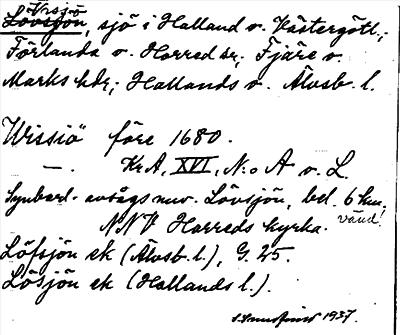 Vissjö
Lövsjön, sjö i Halland o. Västergötl.;
Förlanda o. Horred sr; Fjäre o.
Marks hdr; Hallands o. Älvsb. l.
Wissiö före 1680.
—. Kr.A, XVI, N:o A o. L.
Synbarl. avsågs nuv. Lövsjön, bel. 6 km.
NNV Horreds kyrka. vänd!
Löfsjön ek (Älvsb. l.), G. 25.
Lösjön ek (Hallands l.).
1937.